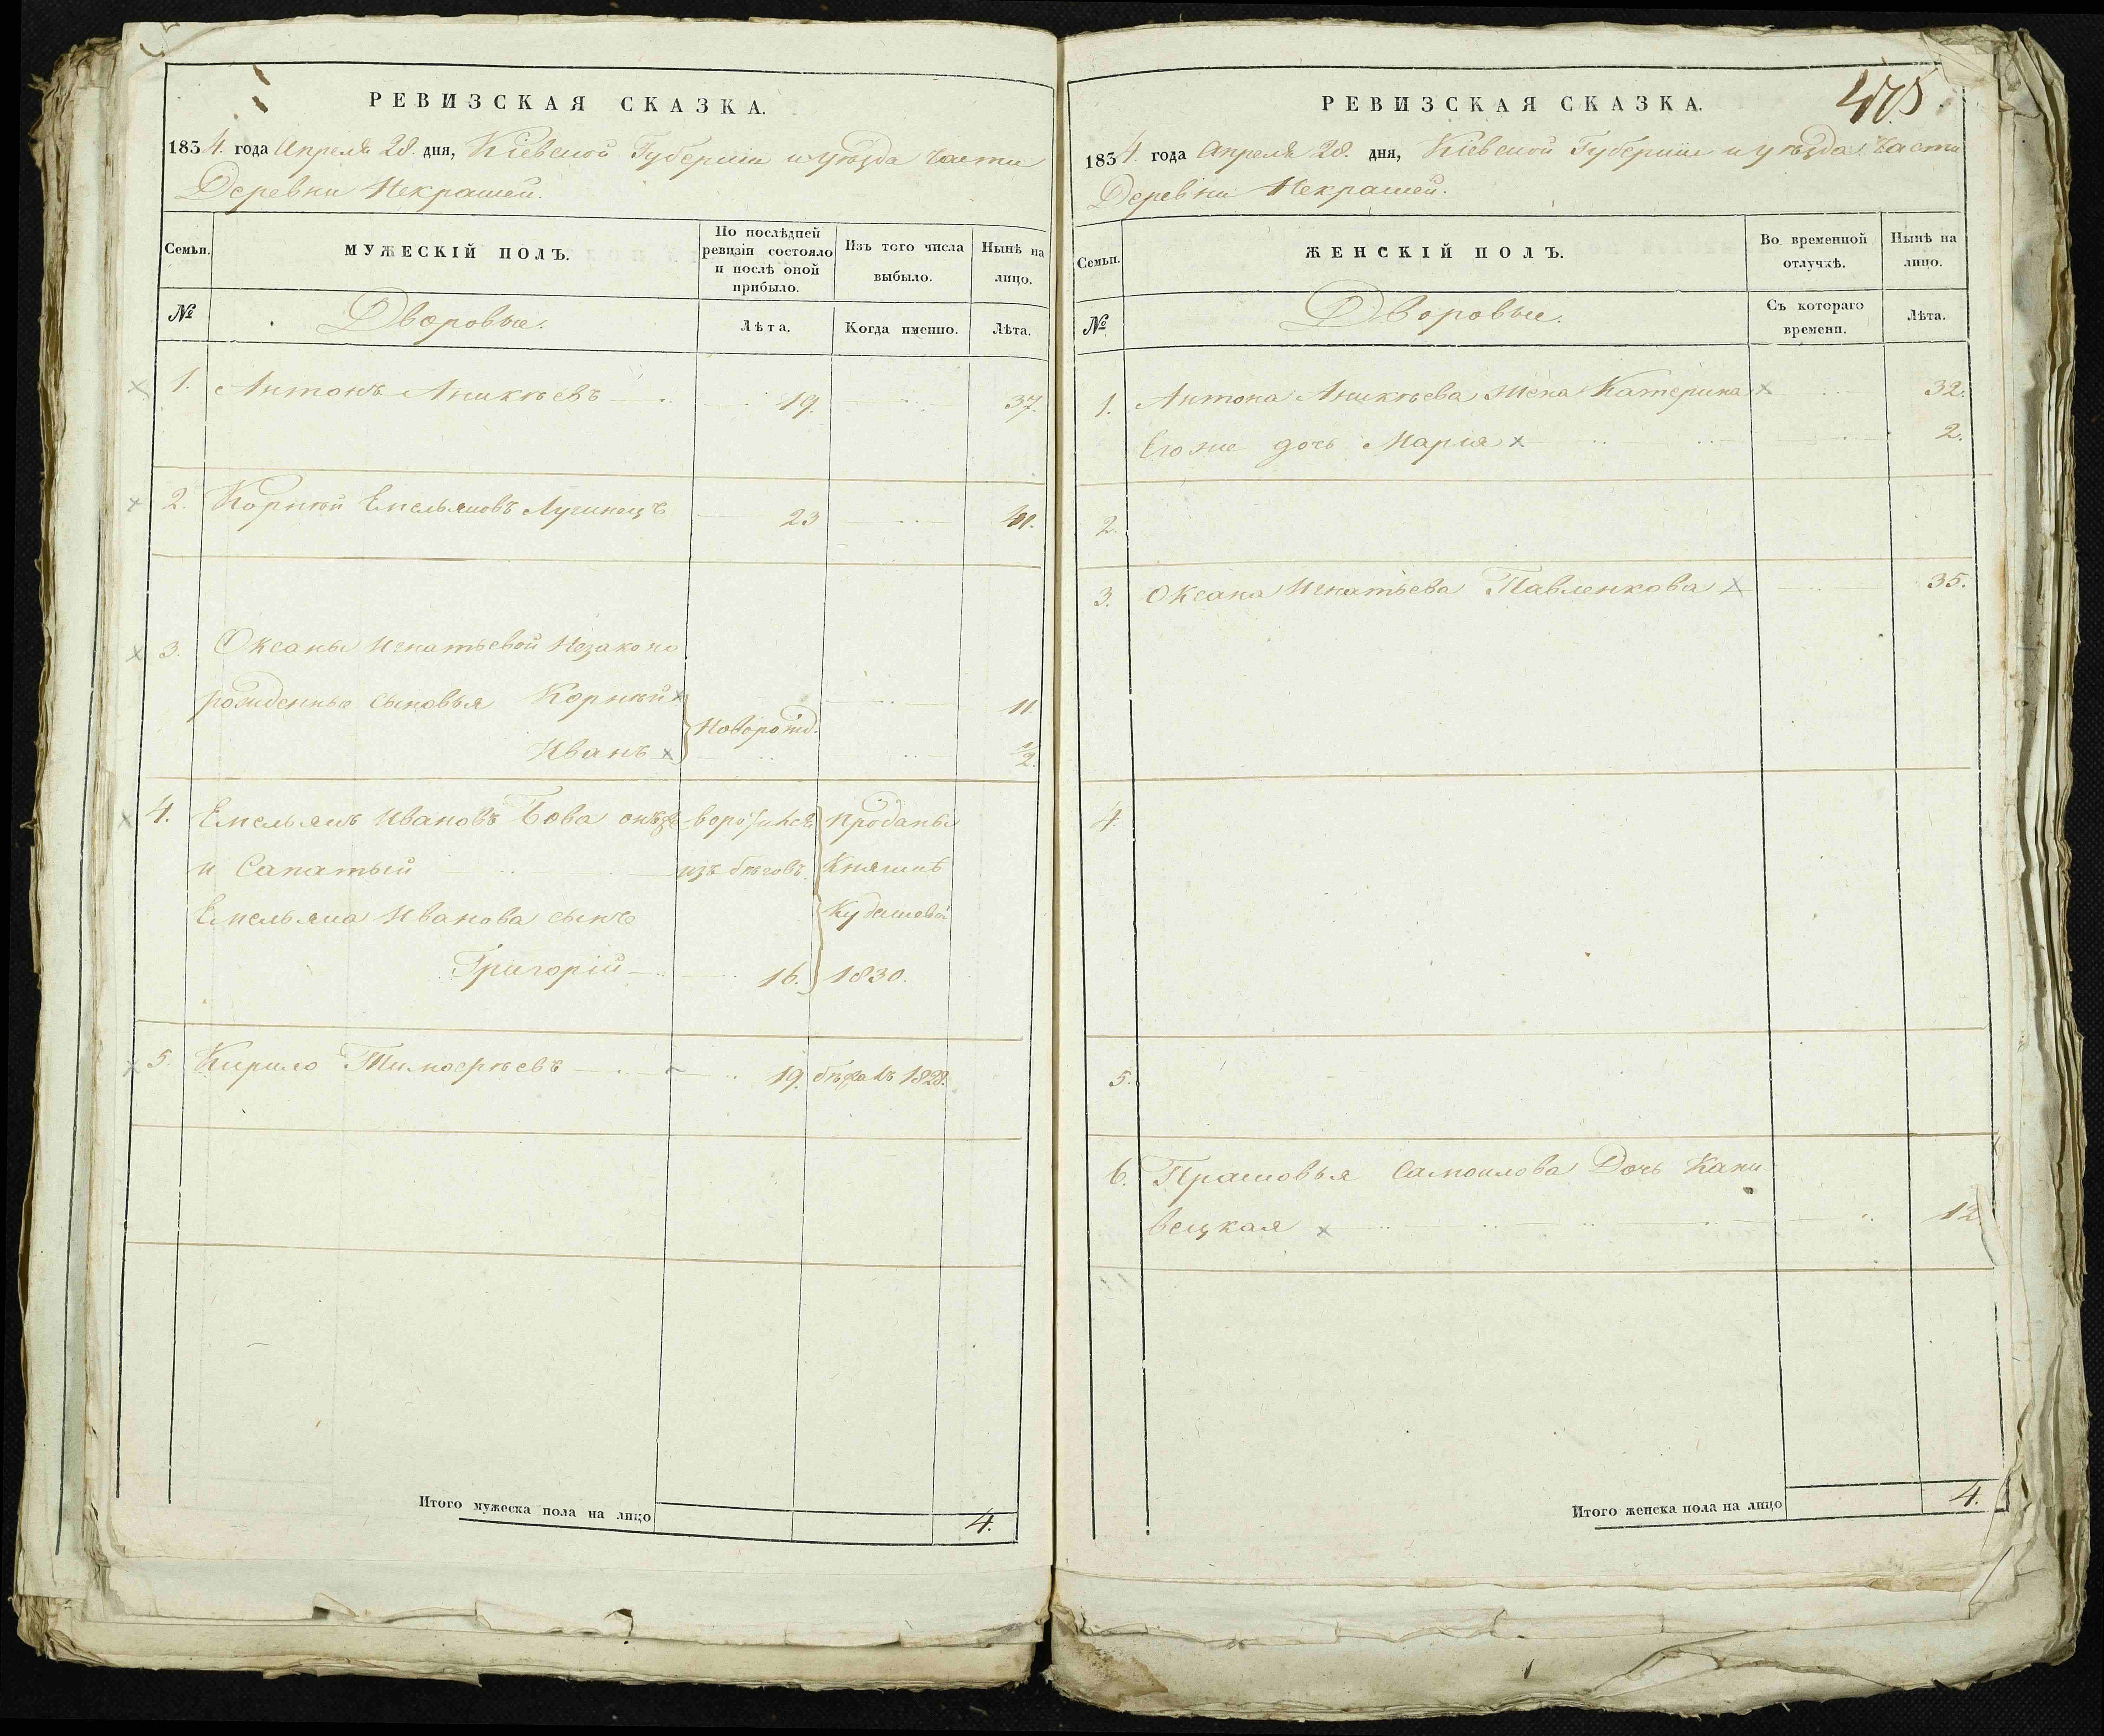 РЕВИЗСКАЯ СКАЗКА.
1834. года Апреля 28. дня, Кіевской Губерніи и уѣзда части
Деревни Некрашей.
Семьи.
МУЖЕСКІЙ ПОЛЪ.
По послѣдней
ревизіи состояло
и послѣ оной
прибыло.
Изъ того числа
выбыло.
Нынѣ на
лицо.
№
Дворовые.
Лѣта.
Когда именно.
Лѣта.
1. Антонъ Аникѣевъ 19. 37.
2. Корнѣй Емельяновъ Лучинецъ 23 41.
3. Оксаны Игнатьевой Незаконо
рожденные сыновья Корнѣй 11.
Новорожд.
Иванъ 1/2.
4. Емельянъ Ивановъ Бова онъ же Проданы
и Сапатый изъ бѣговъ. Княгинѣ
Емельяна Иванова сынъ Кудашевой
Григорій 16. 1830.
5. Кирило Тимофѣевъ 19. бѣжалъ 1828.
Итого мужеска пола на лицо 4.
475
РЕВИЗСКАЯ СКАЗКА.
1834. года Апреля 28. дня, Кіевской Губерніи и уѣзда части
Деревни Некрашей.
Семьи.
ЖЕНСКІЙ ПОЛЪ.
Во временной
отлучкѣ.
Нынѣ на
лицо.
№
Дворовые.
Съ котораго
времени.
Лѣта.
1. Антона Аникѣева жена Катерина 32.
Егоже дочь Марія 2.
2.
3. Оксана Игнатьева Павленкова 35.
4.
5.
6. Прасковья Самоилова Дочь Кани
вецкая 12.
Итого женска пола на лицо 4.